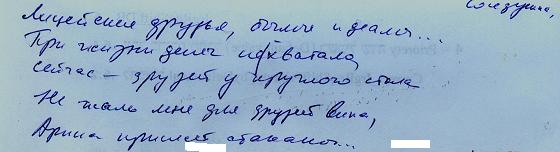 Лицейские друзья, былые идеалы...
При жизни денег не хватало,
Сейчас – друзей у круглого стола
Не жаль мне для друзей вина,
Арина принесёт стаканы...